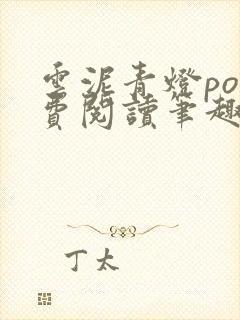 雲泥青燈po
費閱讀筆趣
丁太